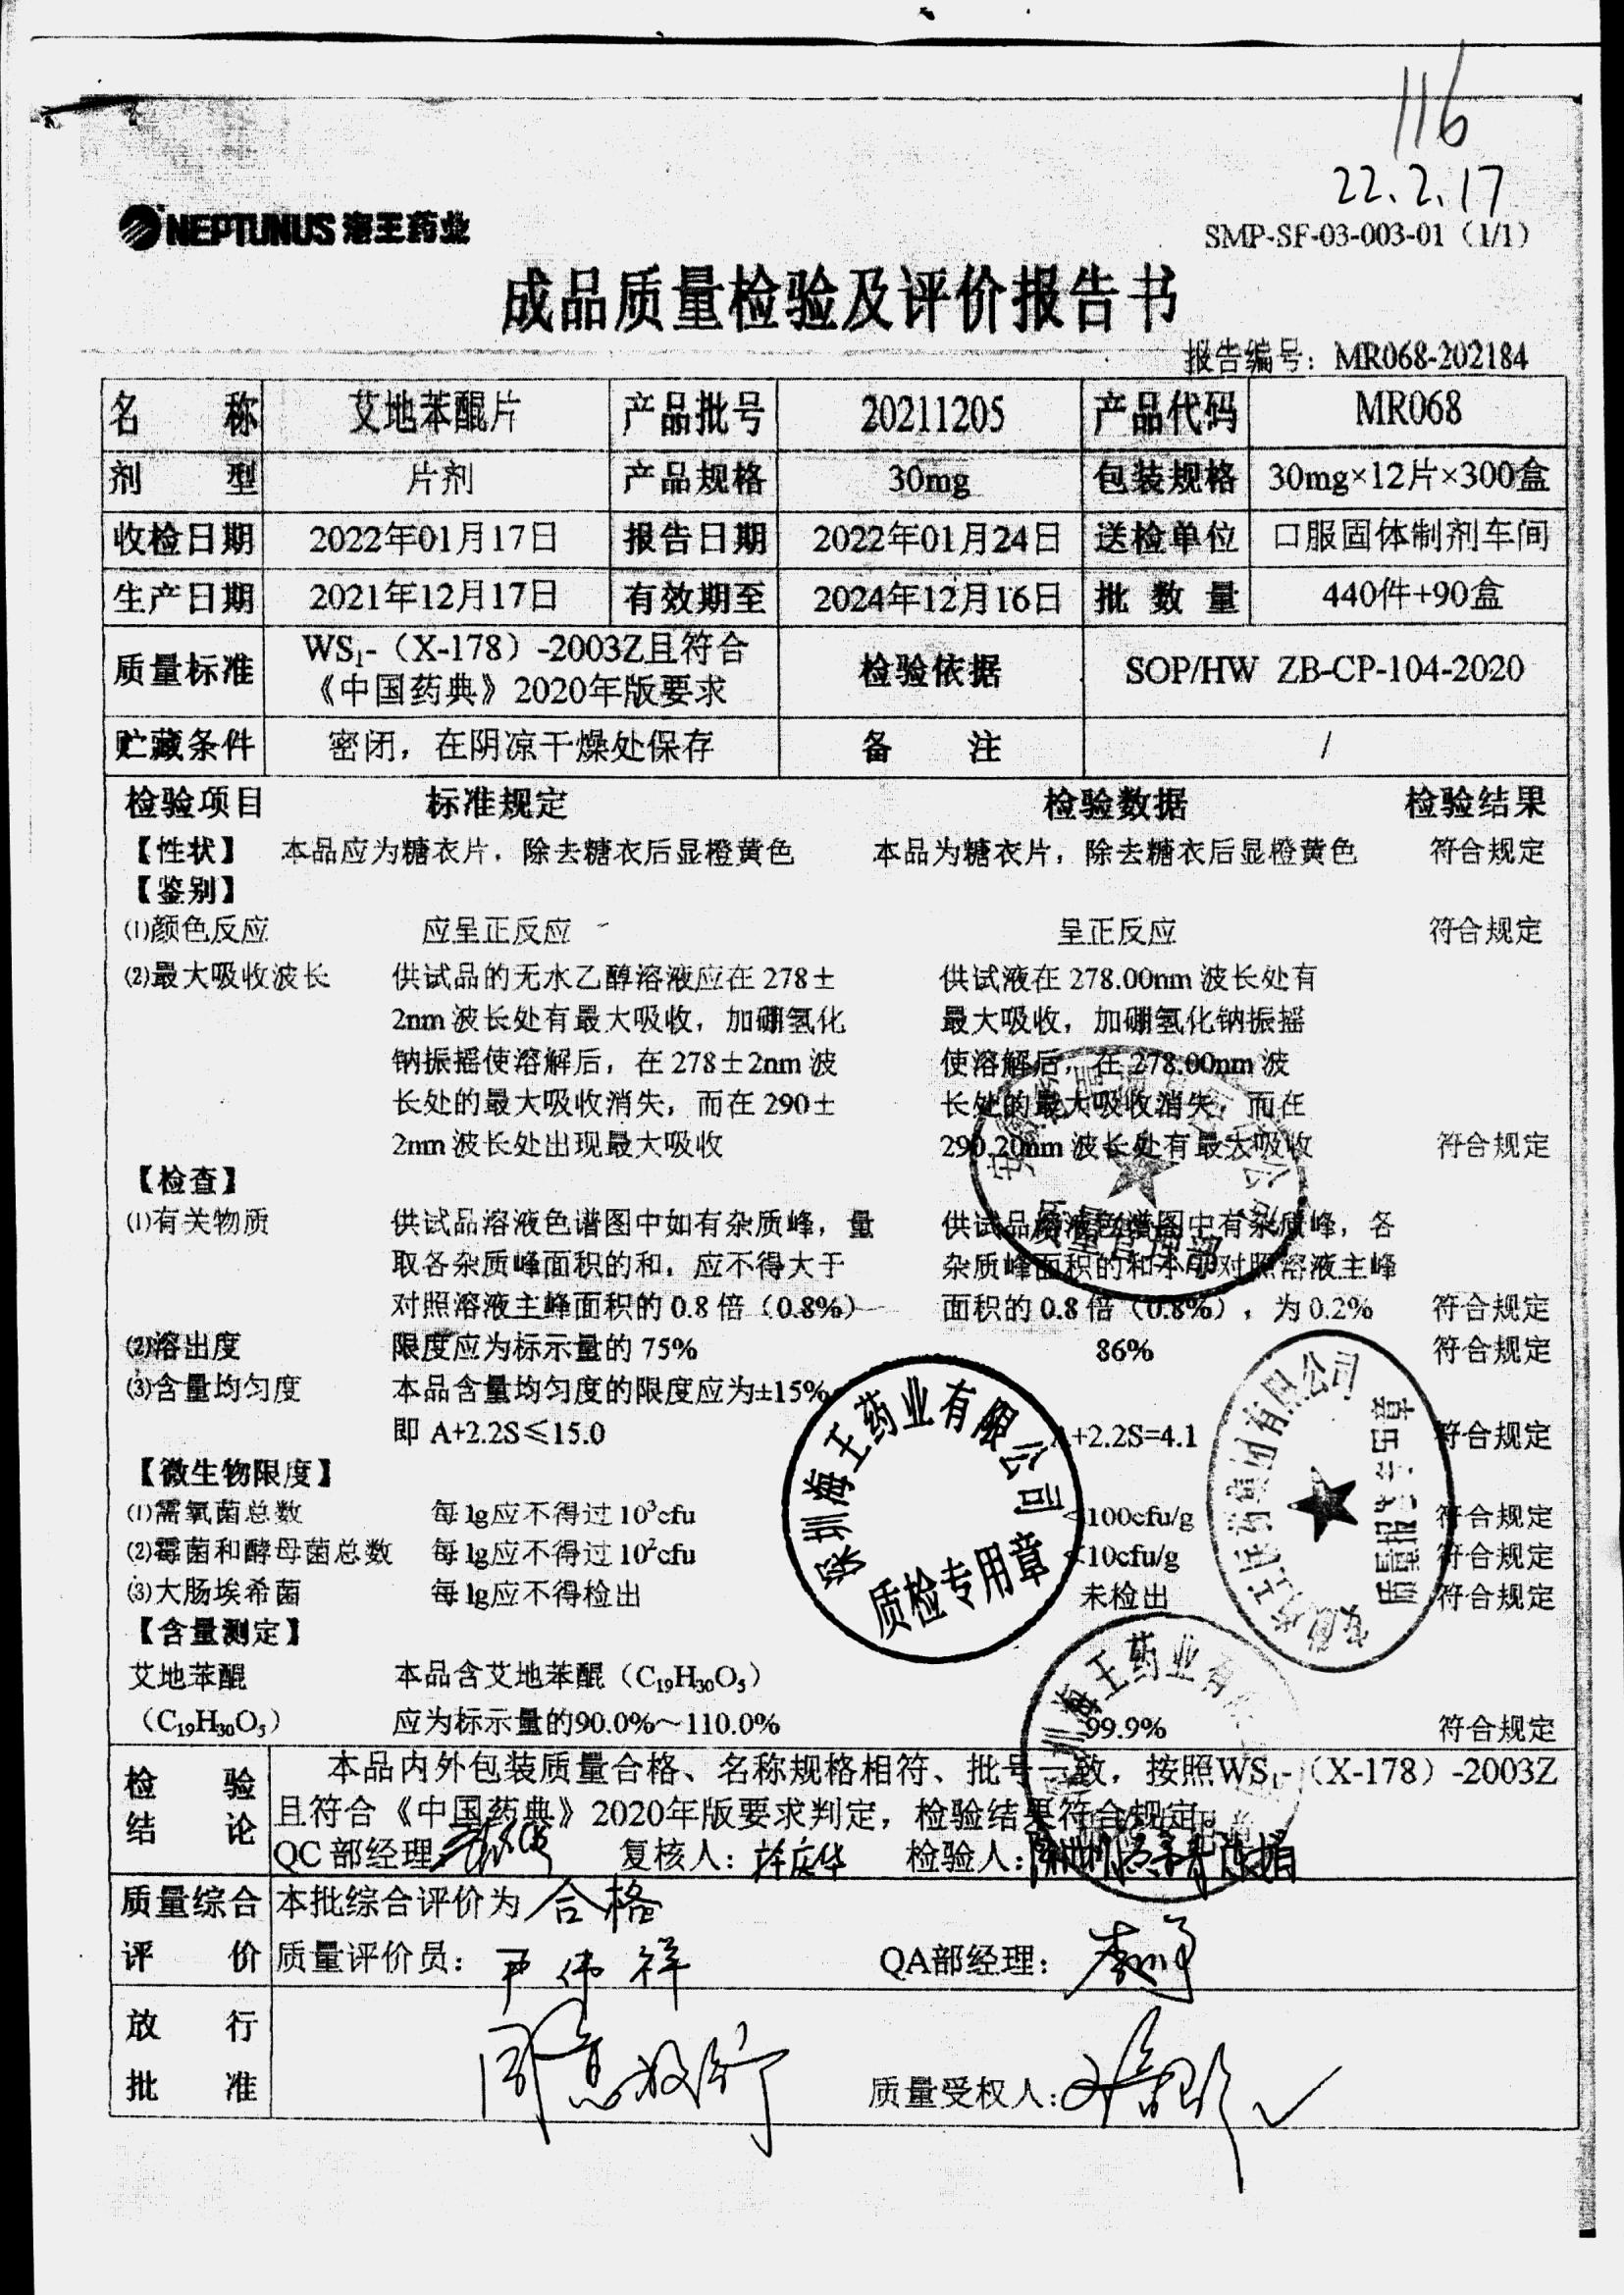 116
22.2.17
NEPTUNUS 海王药业
SMP-SF-03-003-01（1/1）
成品质量检验及评价报告书
报告编号：MR068-202184
名 称 艾地苯醌片 产品批号 20211205 产品代码 MR068
剂 型 片剂 产品规格 30mg 包装规格 30mg×12片×300盒
收检日期 2022年01月17日 报告日期 2022年01月24日 送检单位 口服固体制剂车间
生产日期 2021年12月17日 有效期至 2024年12月16日 批 数 量 440件+90盒
质量标准 WS₁-（X-178）-2003Z且符合
《中国药典》2020年版要求 检验依据 SOP/HW ZB-CP-104-2020
贮藏条件 密闭，在阴凉干燥处保存 备 注 /
检验项目 标准规定 检验数据 检验结果
【性状】 本品应为糖衣片，除去糖衣后显橙黄色 本品为糖衣片，除去糖衣后显橙黄色 符合规定
【鉴别】
⑴颜色反应 应呈正反应 呈正反应 符合规定
⑵最大吸收波长 供试品的无水乙醇溶液应在 278± 供试液在 278.00nm 波长处有
2nm 波长处有最大吸收，加硼氢化 最大吸收，加硼氢化钠振摇
钠振摇使溶解后，在 278±2nm 波 使溶解后，在 278.00nm 波
长处的最大吸收消失，而在 290± 长处的最大吸收消失，而在
2nm 波长处出现最大吸收 290.20nm 波长处有最大吸收 符合规定
【检查】
⑴有关物质 供试品溶液色谱图中如有杂质峰，量 供试品溶液色谱图中有杂质峰，各
取各杂质峰面积的和，应不得大于 杂质峰面积的和不大于对照溶液主峰
对照溶液主峰面积的 0.8 倍（0.8%） 面积的 0.8 倍（0.8%），为 0.2% 符合规定
⑵溶出度 限度应为标示量的 75% 86% 符合规定
⑶含量均匀度 本品含量均匀度的限度应为±15%
即 A+2.2S≤15.0 A+2.2S=4.1 符合规定
【微生物限度】
⑴需氧菌总数 每 1g应不得过 10³cfu <100cfu/g 符合规定
⑵霉菌和酵母菌总数 每 1g应不得过 10²cfu <10cfu/g 符合规定
⑶大肠埃希菌 每 1g应不得检出 未检出 符合规定
【含量测定】
艾地苯醌 本品含艾地苯醌（C₁₉H₃₀O₅）
（C₁₉H₃₀O₅） 应为标示量的90.0%～110.0% 99.9% 符合规定
深圳海王药业有限公司
质检专用章
质量管理部
检 验
结 论 本品内外包装质量合格、名称规格相符、批号一致，按照WS₁-（X-178）-2003Z
且符合《中国药典》2020年版要求判定，检验结果符合规定。
QC 部经理 复核人： 检验人：
质量综合
评 价 本批综合评价为 合格
质量评价员：尹伟祥 QA部经理：
放 行
批 准 同意放行 质量受权人：